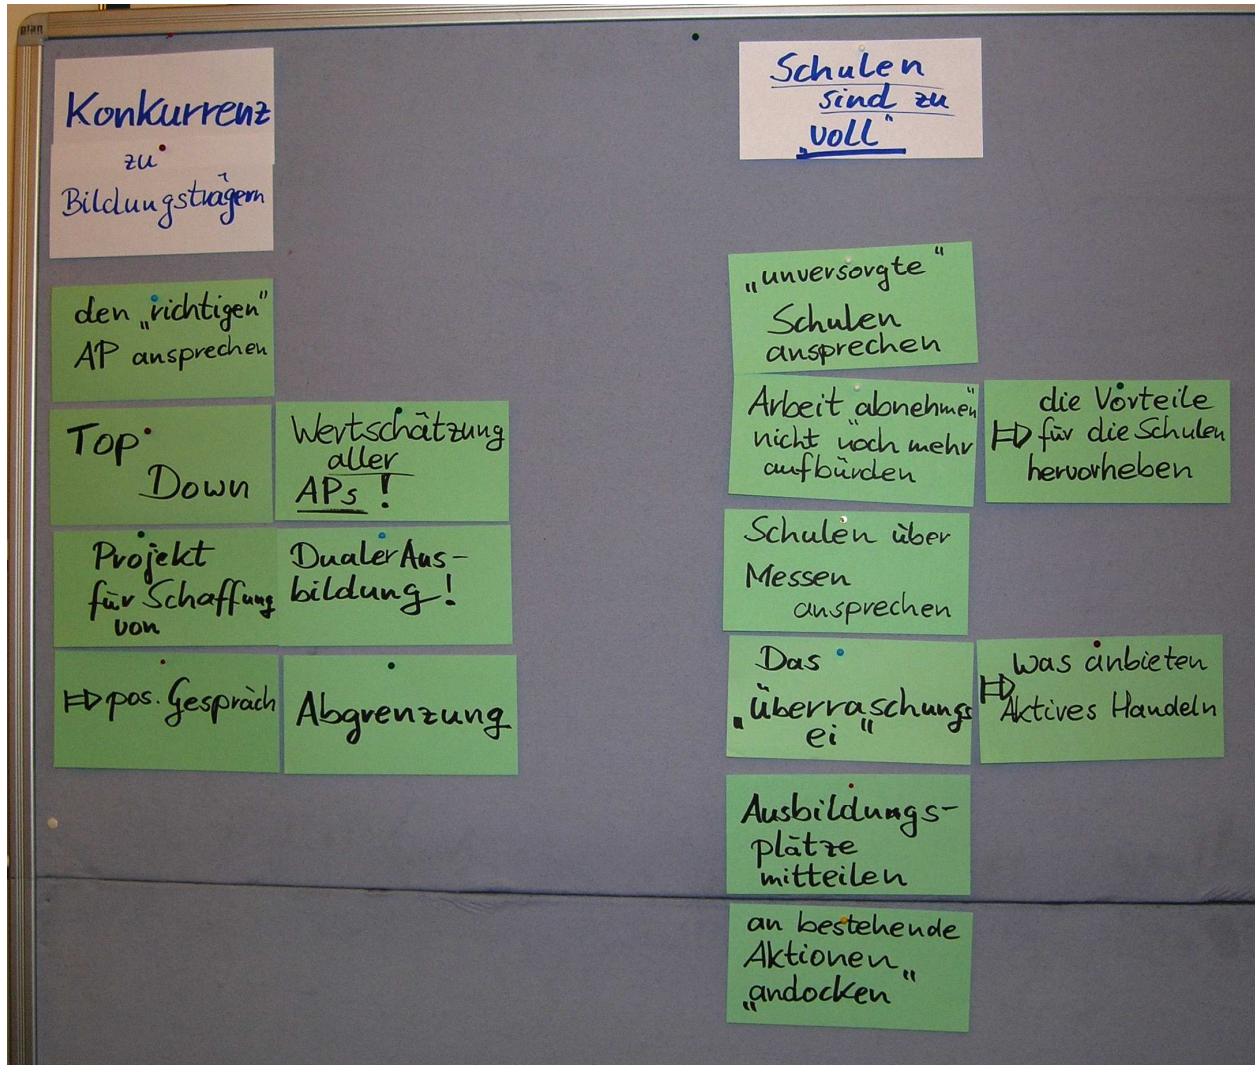 plan
Konkurrenz
zu
Bildungsträgern
den „richtigen"
AP ansprechen
Top
Down
Wertschätzung
aller
APs !
Projekt
für Schaffung
von
Dualer Aus-
bildung!
⇒ pos. Gespräch
Abgrenzung
Schulen
sind zu
„voll"
„unversorgte"
Schulen
ansprechen
Arbeit „abnehmen"
nicht noch mehr
aufbürden
die Vorteile
⇒ für die Schulen
hervorheben
Schulen über
Messen
ansprechen
Das
„überraschungs
ei"
⇒ was anbieten
Aktives Handeln
Ausbildungs-
plätze
mitteilen
an bestehende
Aktionen
„andocken"